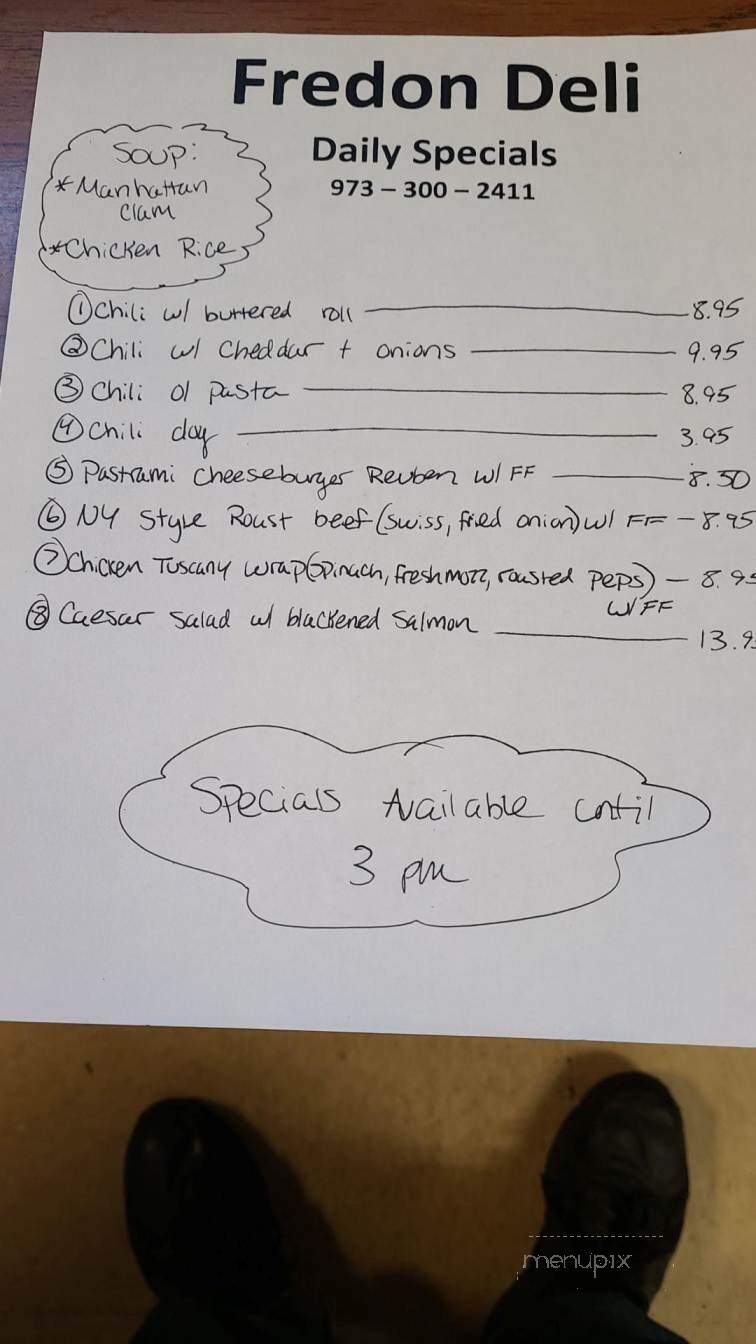 Fredon Deli
Daily Specials
973 – 300 – 2411
Soup:
*Manhattan
Clam
*Chicken Rice
① Chili w/ buttered roll — 8.95
② Chili w/ Cheddar + onions — 9.95
③ Chili o/ pasta — 8.95
④ Chili dog — 3.95
⑤ Pastrami Cheeseburger Reuben w/ FF — 8.50
⑥ NY Style Roast beef (swiss, fried onion) w/ FF – 8.95
⑦ Chicken Tuscany wrap (Spinach, fresh mozz, roasted peps) – 8.95
w/ FF
⑧ Caesar salad w/ blackened Salmon — 13.9
Specials Available until
3 pm
menupix